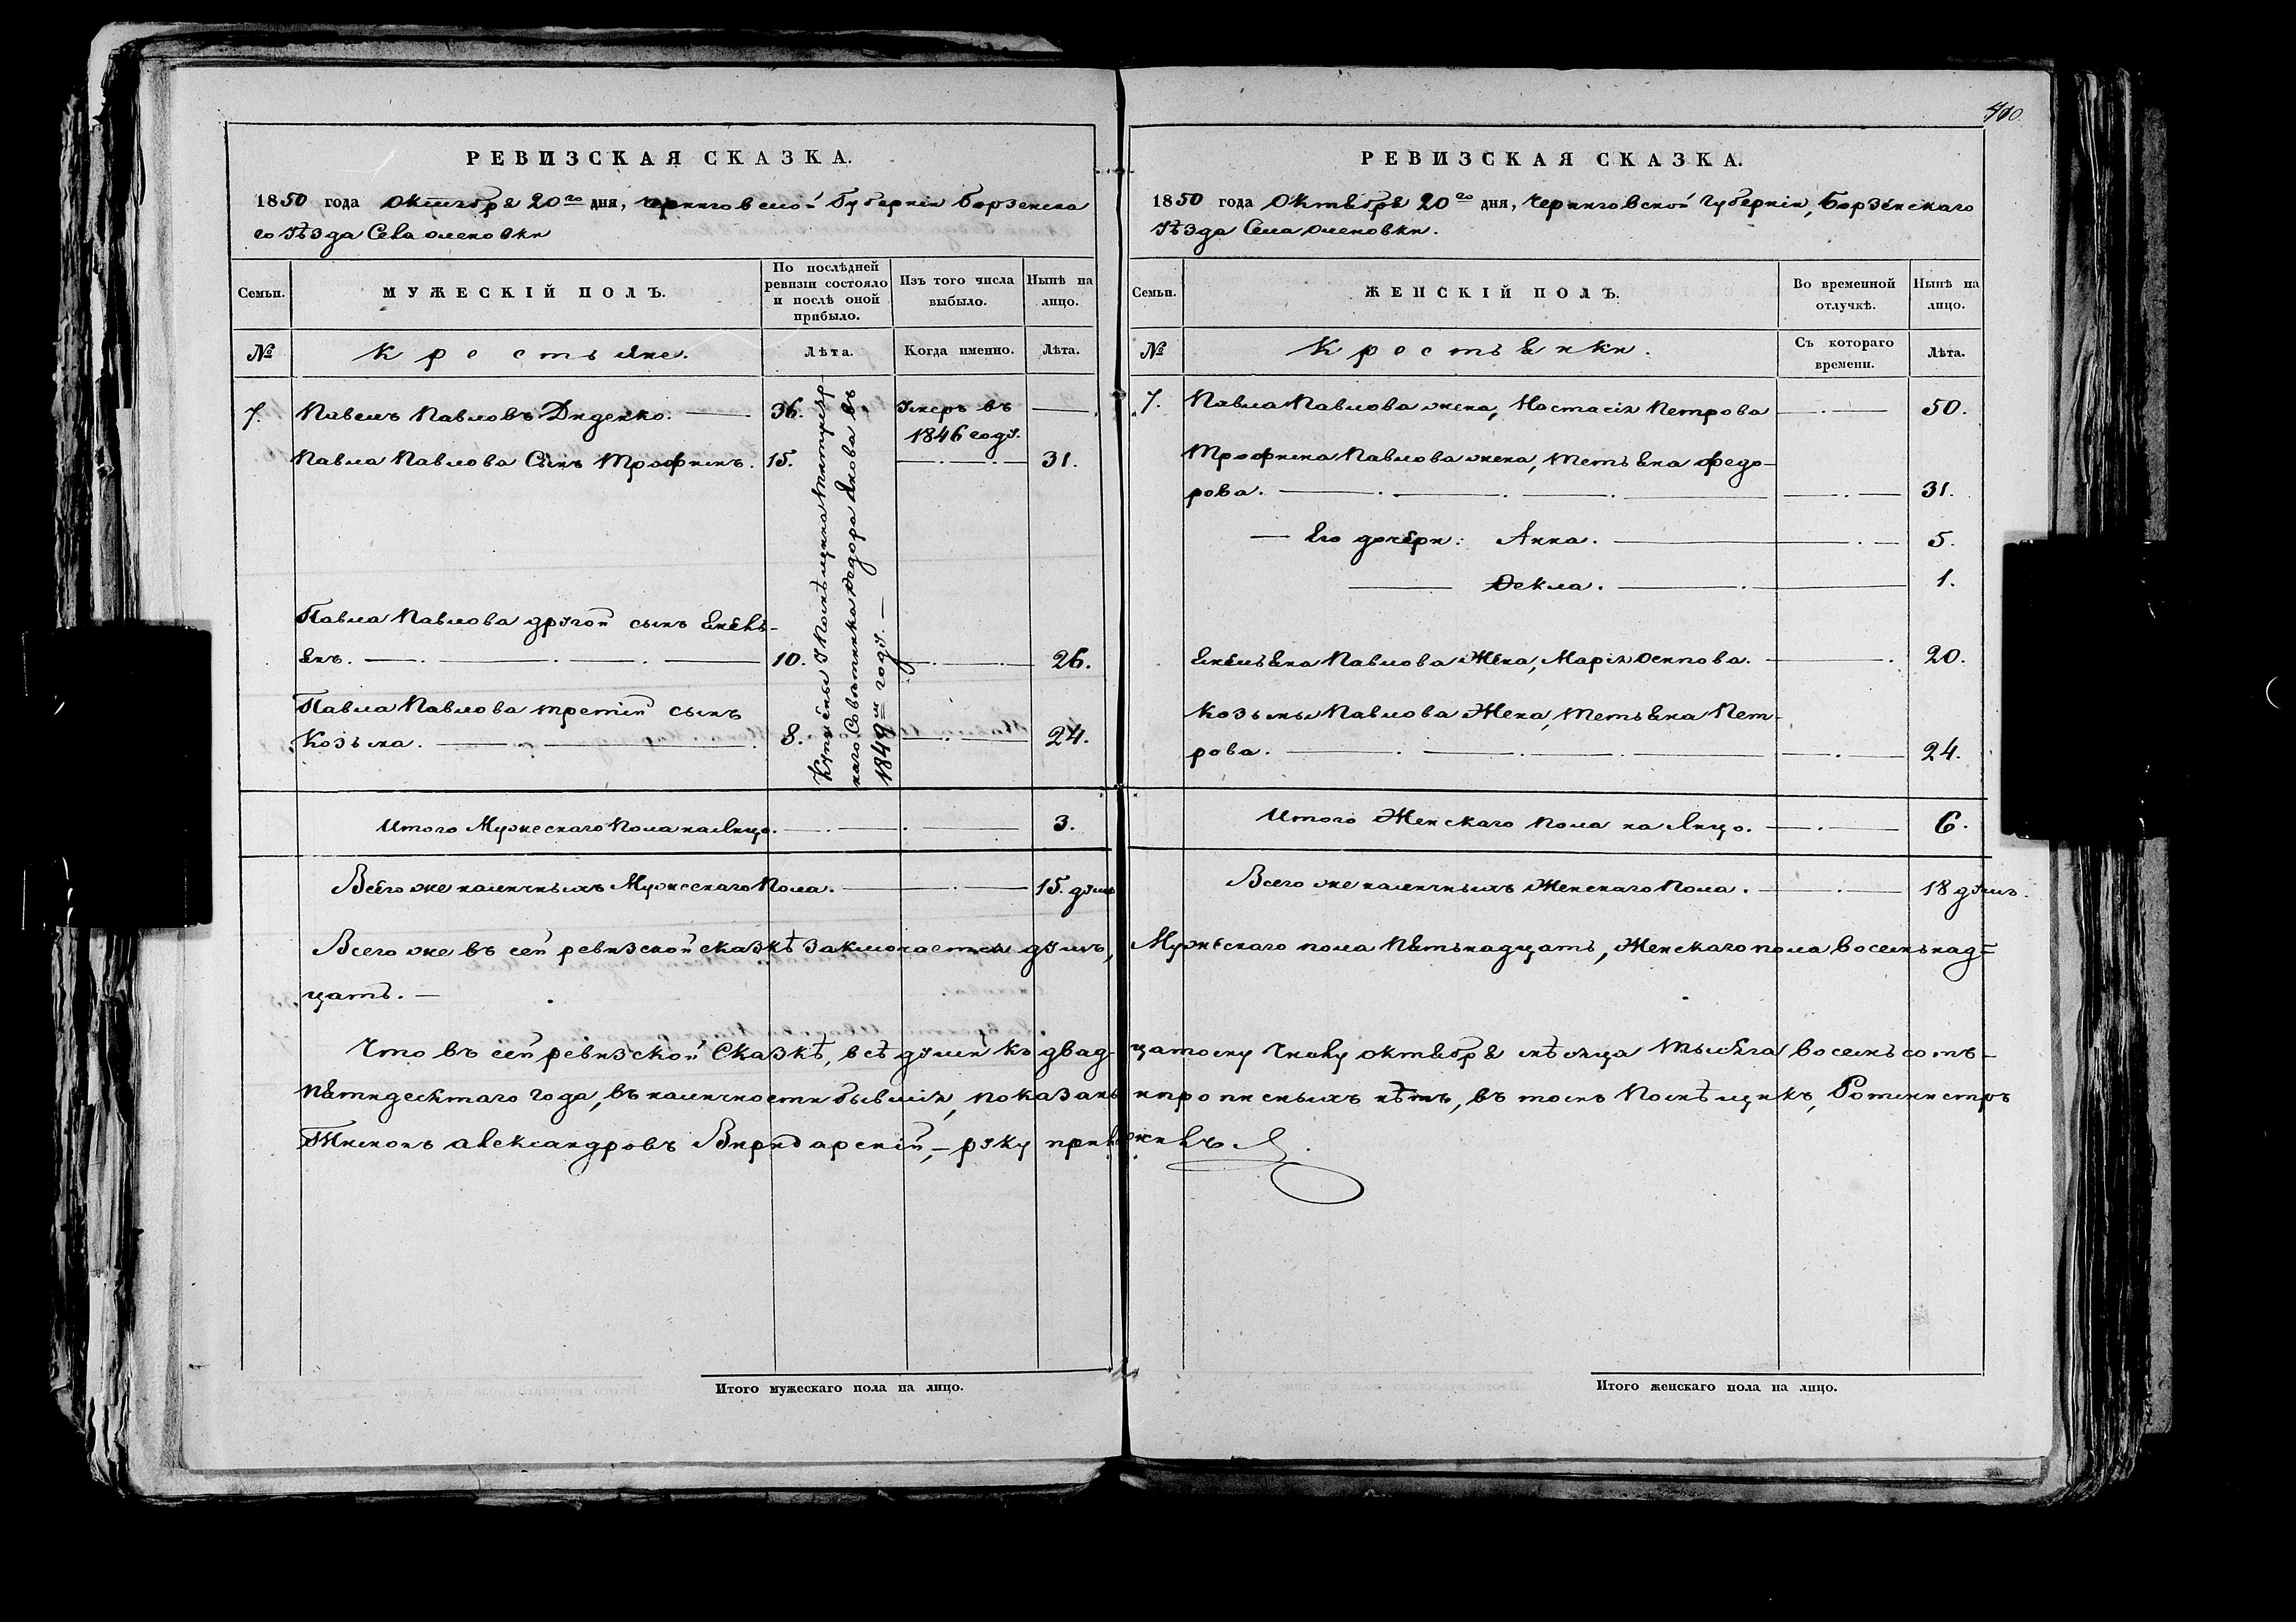 РЕВИЗСКАЯ СКАЗКА.
1850 года Октября 20го дня, Черниговской Губерніи Борзенска
го уѣзда Села оленовки
Семьи.
МУЖЕСКІЙ ПОЛЪ.
По послѣдней ревизіи состояло и послѣ оной прибыло.
Изъ того числа выбыло.
Нынѣ на лицо.
№
Крестьяне.
Лѣта.
Когда именно.
Лѣта.
7. Павелъ Павловъ Диденко. 36. Умеръ въ
1846 году.
Павла Павлова Сынъ Трофимъ. 15. 31.
Павла Павлова другой сынъ Емель-
янъ. 10. 26.
Павла Павлова третій сынъ
Козьма. 8. 24.
Куплены У Помѣщика Титуляр-
наго Совѣтника Федора Якова въ
1849м году.
Итого Мужескаго Пола на Лицо. 3.
Всего же наличныхъ Мужескаго Пола. 15. душъ
РЕВИЗСКАЯ СКАЗКА.
410.
1850 года Октября 20го дня, Черниговской Губерніи, Борзенскаго
Уѣзда Села оленовки.
Семьи.
ЖЕНСКІЙ ПОЛЪ.
Во временной отлучкѣ.
Нынѣ на лицо.
№
Крестьянки.
Съ котораго времени.
Лѣта.
7. Павла Павлова жена, Настасія Петрова 50.
Трофима Павлова жена, Тетьяна Федо-
рова. 31.
Его дочери: Анна. 5.
Фекла. 1.
Емельяна Павлова Жена, Марія осипова. 20.
Козьмы Павлова Жена, Тетьяна Пет-
рова. 24.
Итого Женскаго Пола на Лицо. 6.
Всего же наличныхъ Женскаго Пола. 18 душъ.
Всего же въ сей ревизской сказкѣ заключается душъ, Мужескаго пола Пятьнадцать, Женскаго пола восемьнад=
цать.
Что въ сей ревизской Сказкѣ, всѣ души къ двад- цатому Числу октября мѣсяца тысяча восемьсотъ-
Пятидесятаго года, въ наличности бывшія, показаны и прописныхъ нѣтъ, въ томъ Помѣщикъ, Ротмистръ
Тимонъ александровъ Виридарскій,- руку приложилъ
Итого мужескаго пола на лицо.
Итого женскаго пола на лицо.